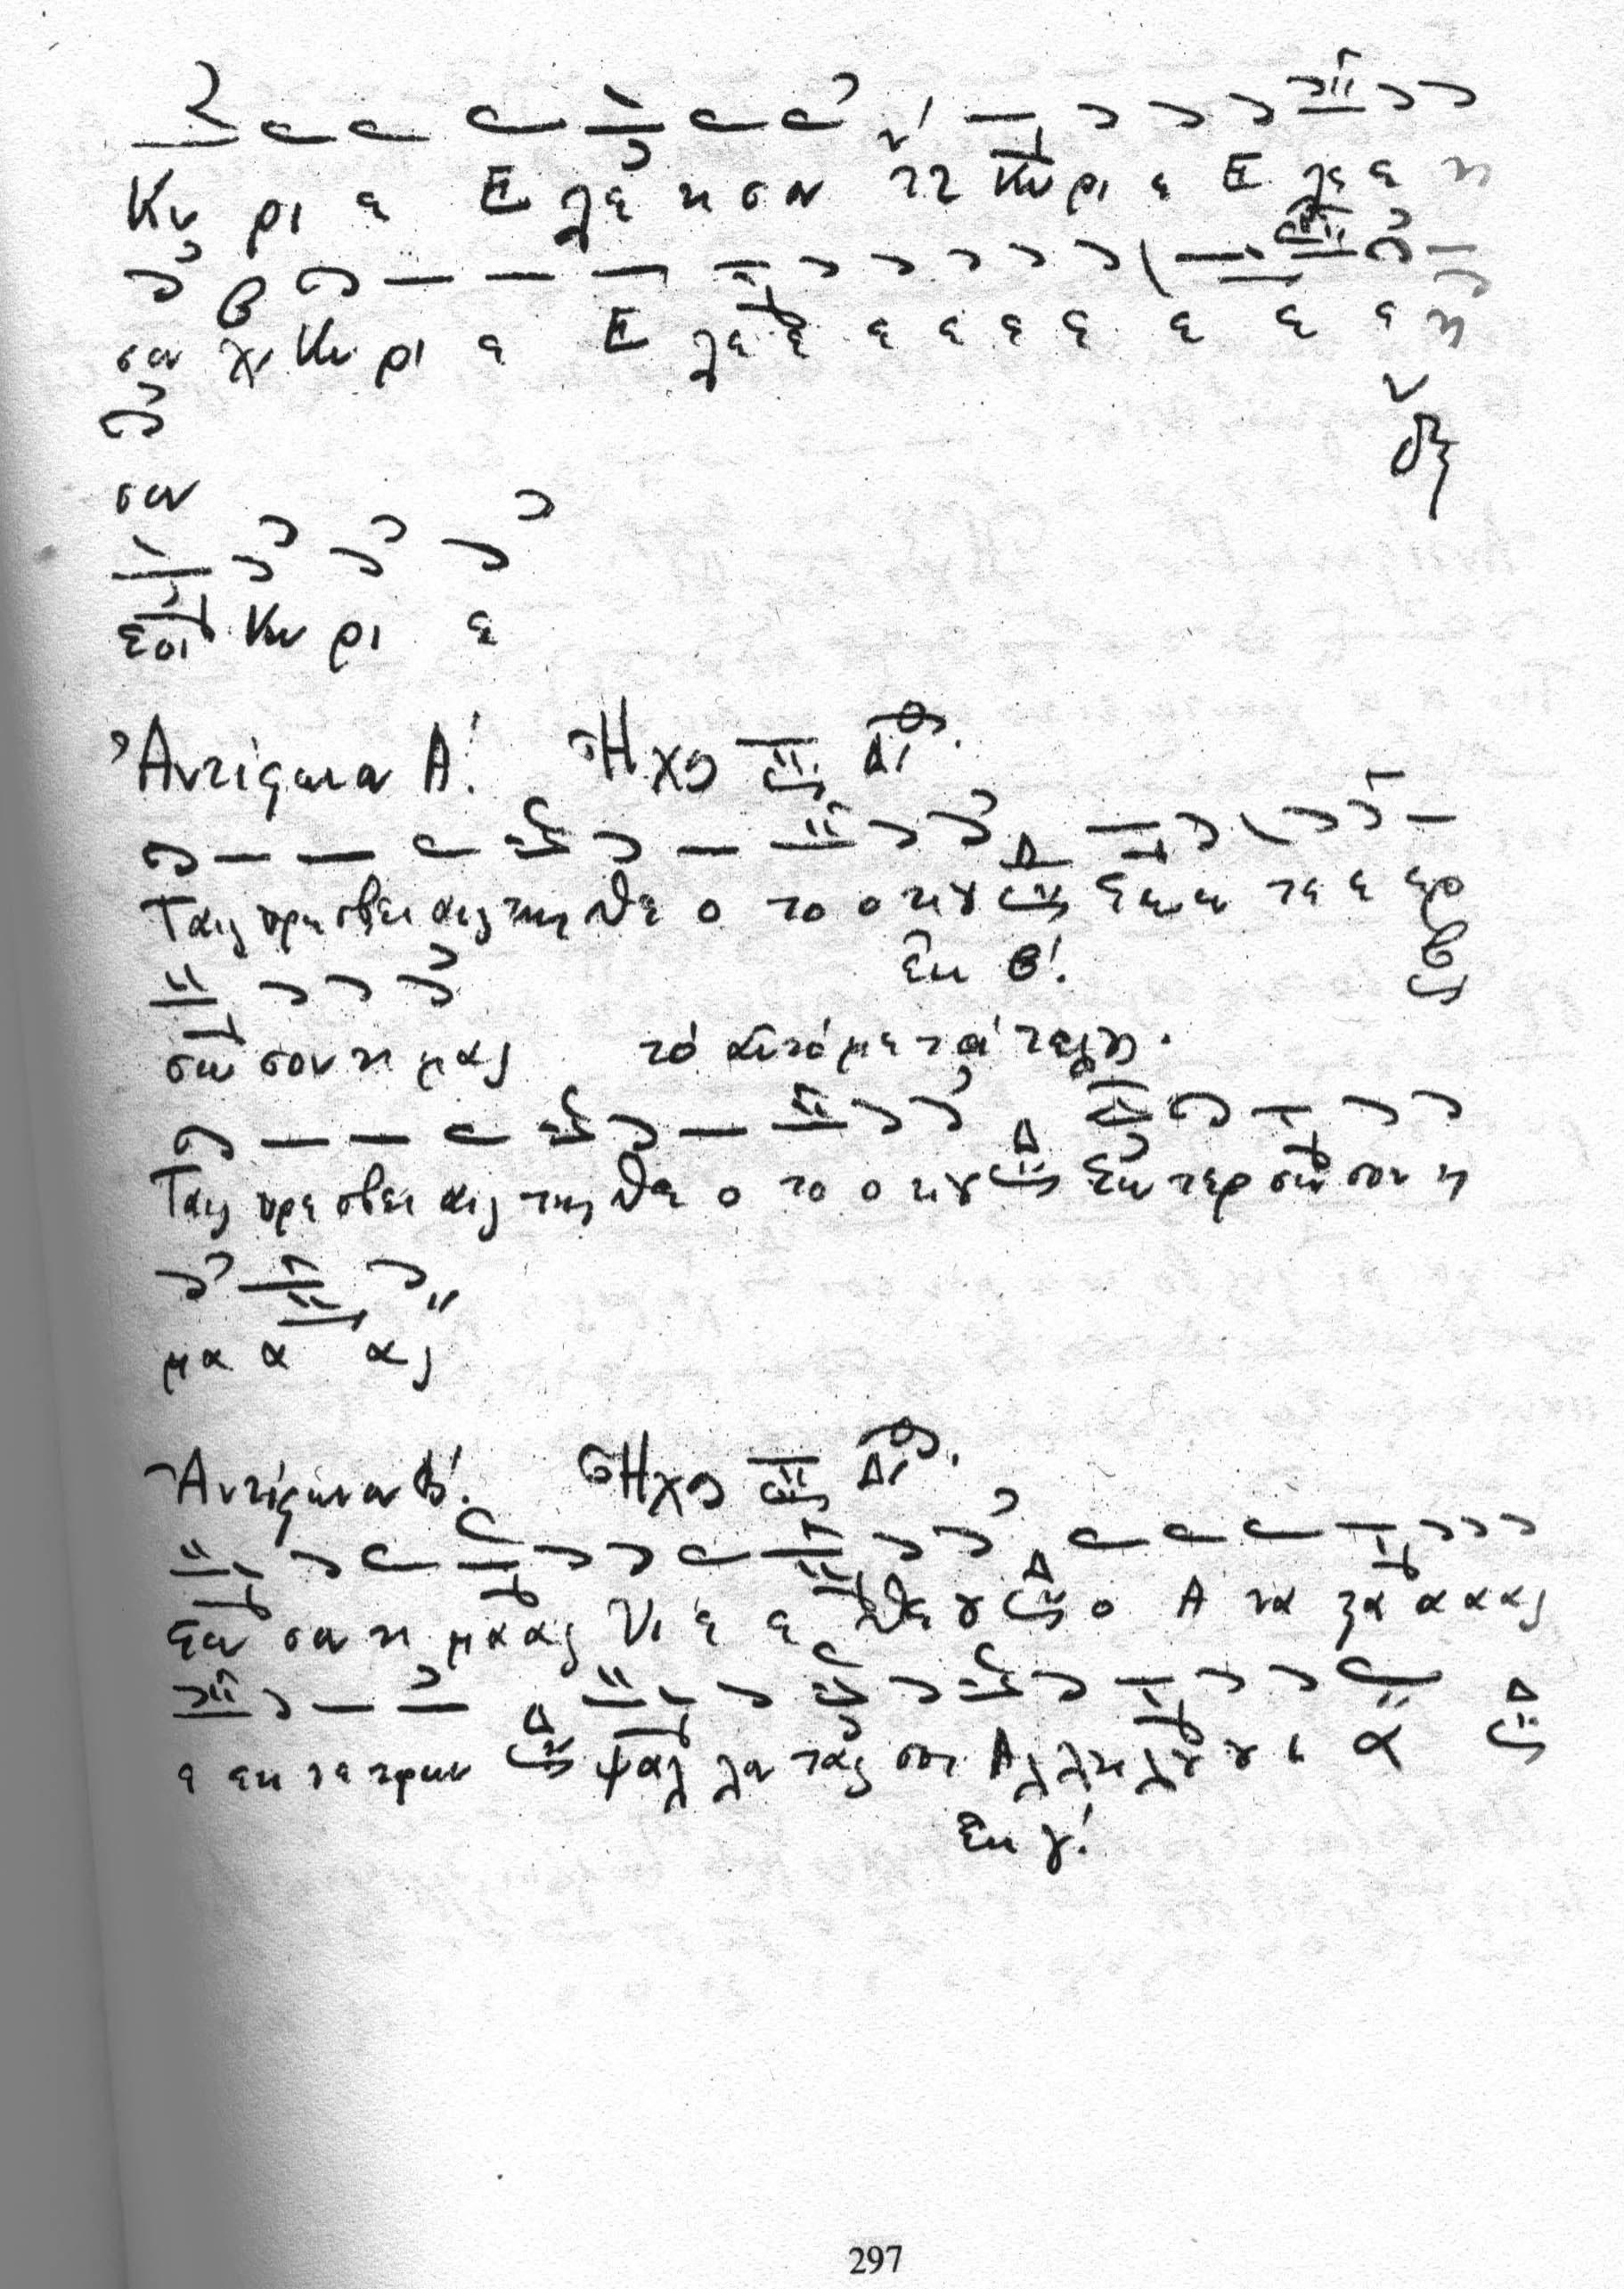 Κυ ρι ε Ε λε η σον Κυ ρι ε Ε λε ε η
σον Κυ ρι ε Ε λε ε ε ε ε ε ε ε ε η
σον
Σοι Κυ ρι ε
Ἀντίφωνον Α΄. Ἦχος Δι
Ταις πρε σβει αις της Θε ο το ο κου Σω ω τε ε ερ
Ἐκ β΄.
σω σον η μας τό αὐτό μετά τέλη.
Ταις πρε σβει αις της Θε ο το ο κου Σω τερ σω σον η
μα α ας
Ἀντίφωνον Β΄. Ἦχος Δι
Σω σον η μα ας Υι ε ε Θε ου ο Α να στα α α ας
ε εκ νε κρων ψαλ λον τας σοι Αλ λη λου ου ι α
Ἐκ γ΄.
297